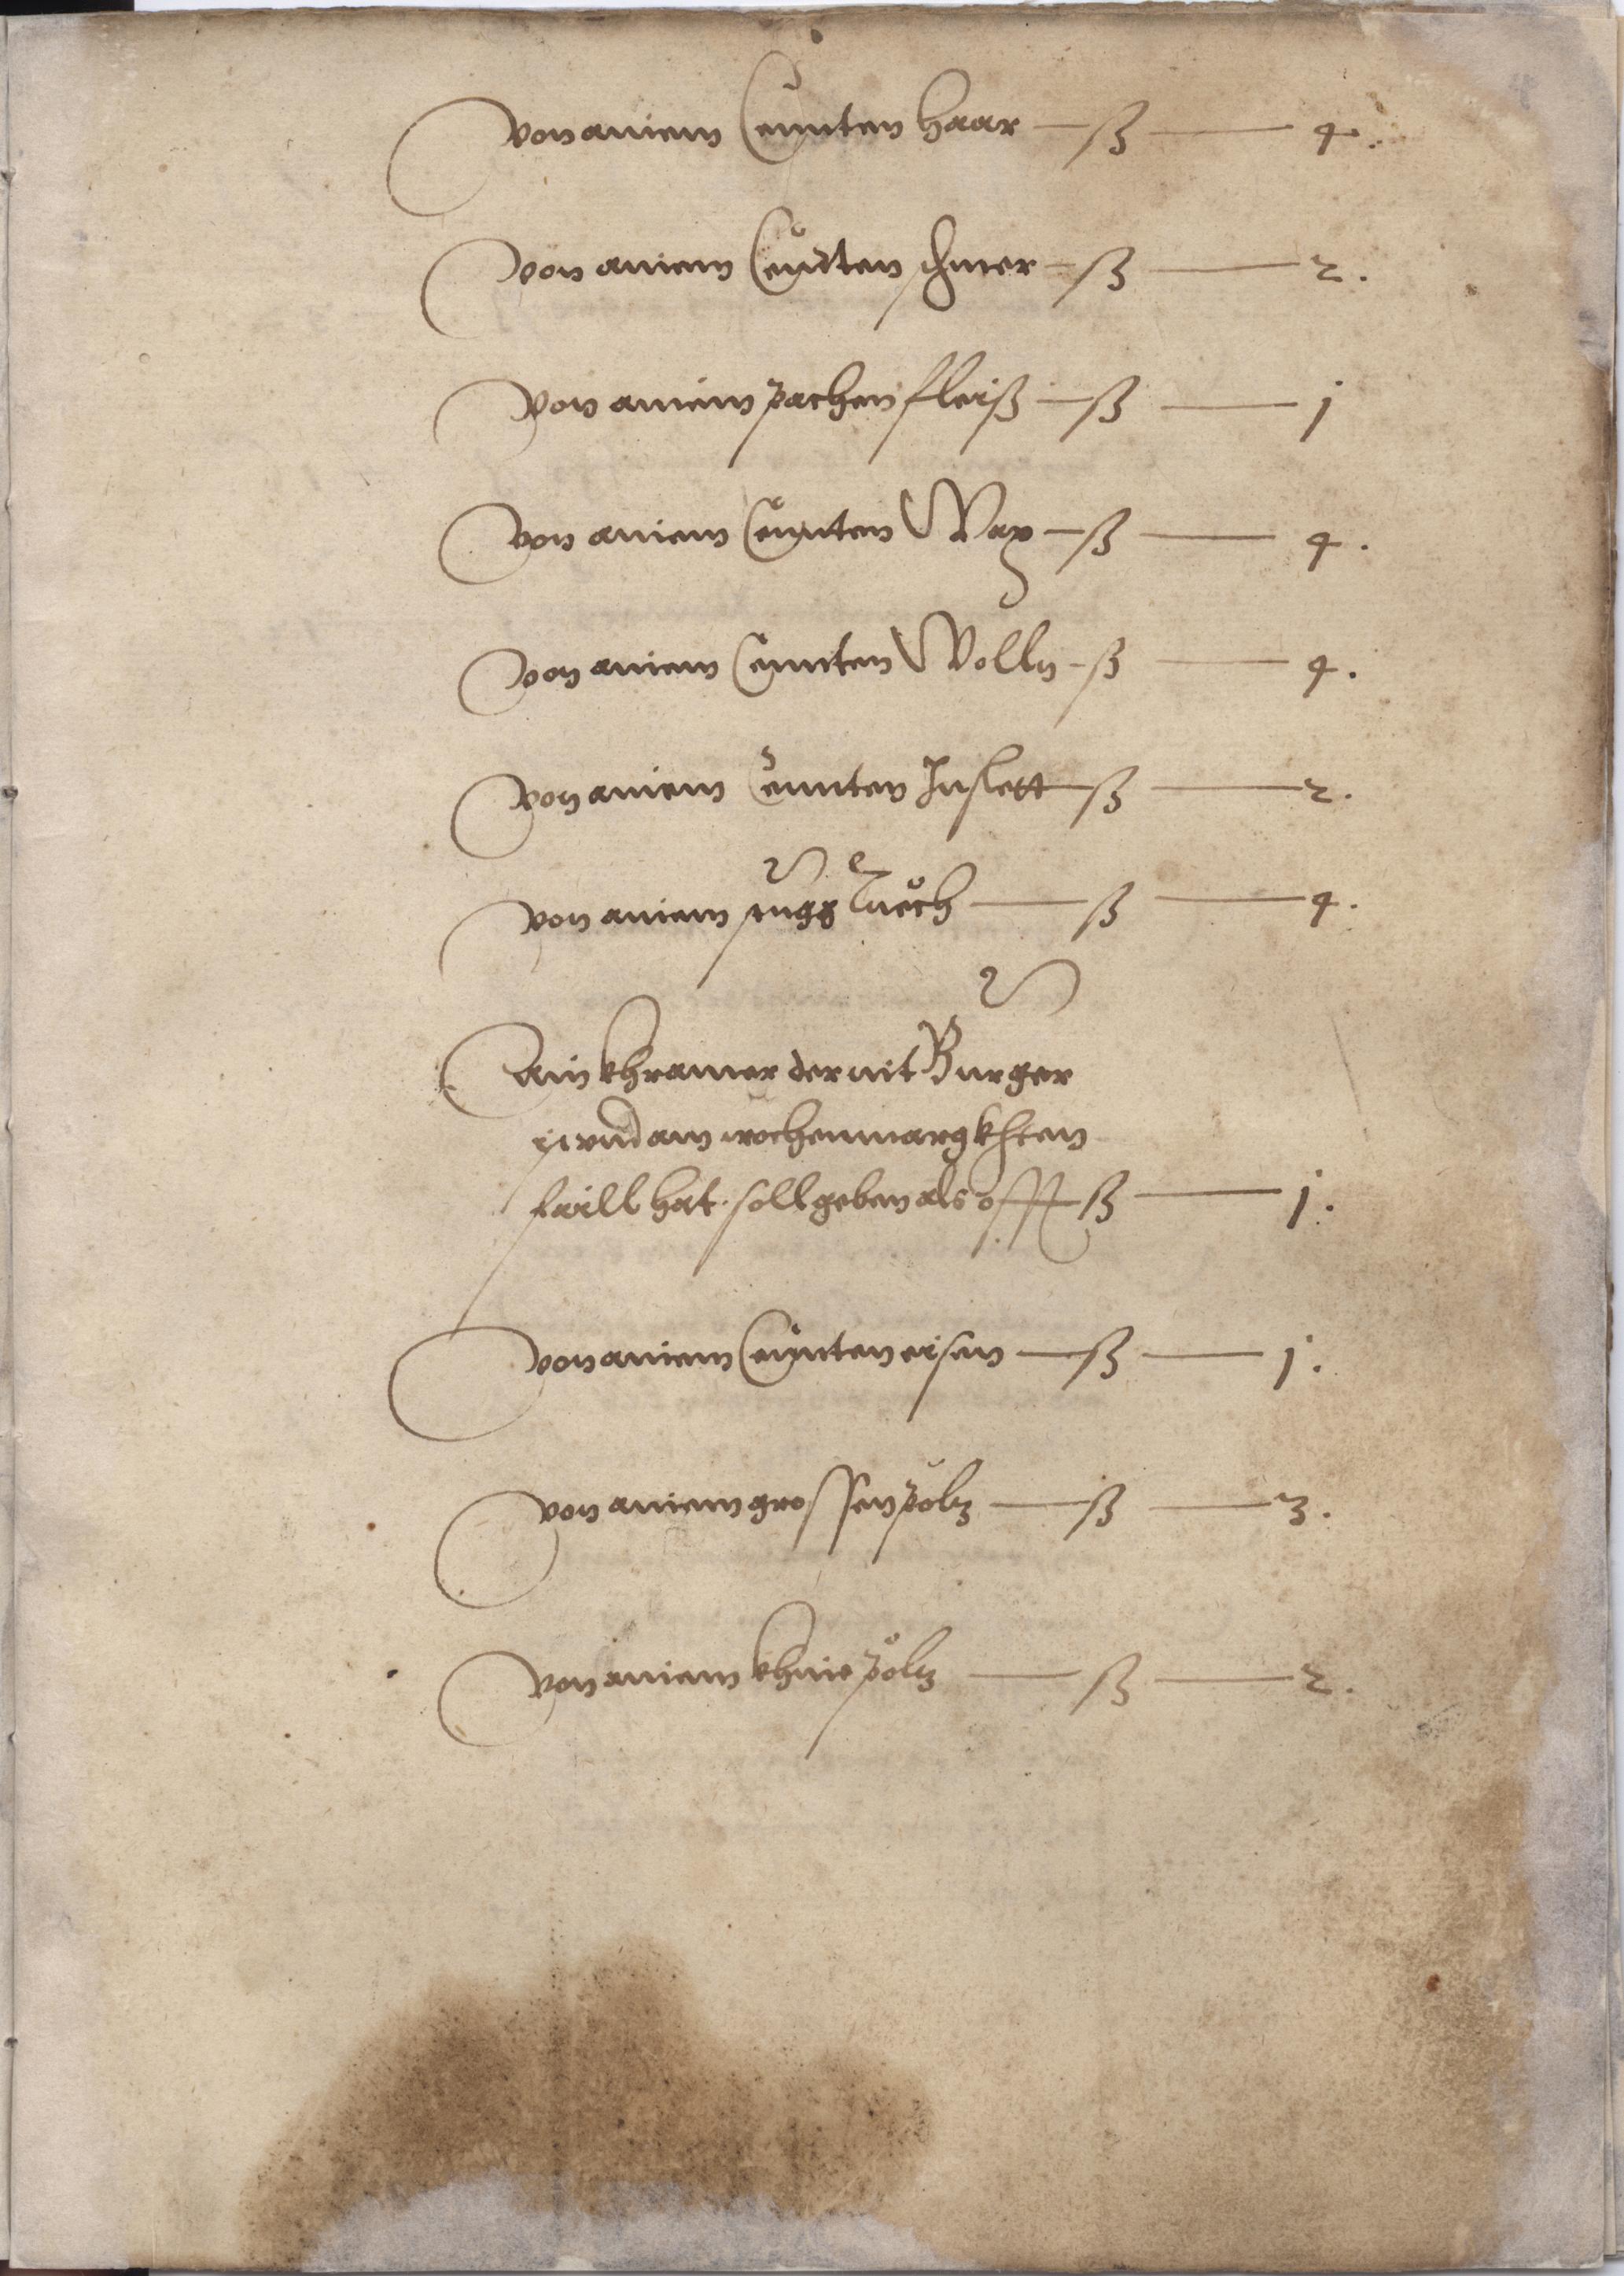 Von ainem Cennten Haar — ß — 4.
Von ainem Cennten schmer — ß — 2.
Von ainem pachen fleisß — ß — 1
Von ainem Cennten Wax — ß — 4.
Von ainem Cennten Wolln — ß — 4.
Von ainem Cennten Inslett — ß — 2.
Von ainem Tuech — ß — 4.
Ain khramer der nit Burger
ist vnd am wochenmargkht ain
faill hat. soll geben als offt ß — 1.
Von ainem Cennten eisen — ß — 1.
Von ainem grossen pölz — ß — 3.
Von ainem khnie pölz — ß — 2.